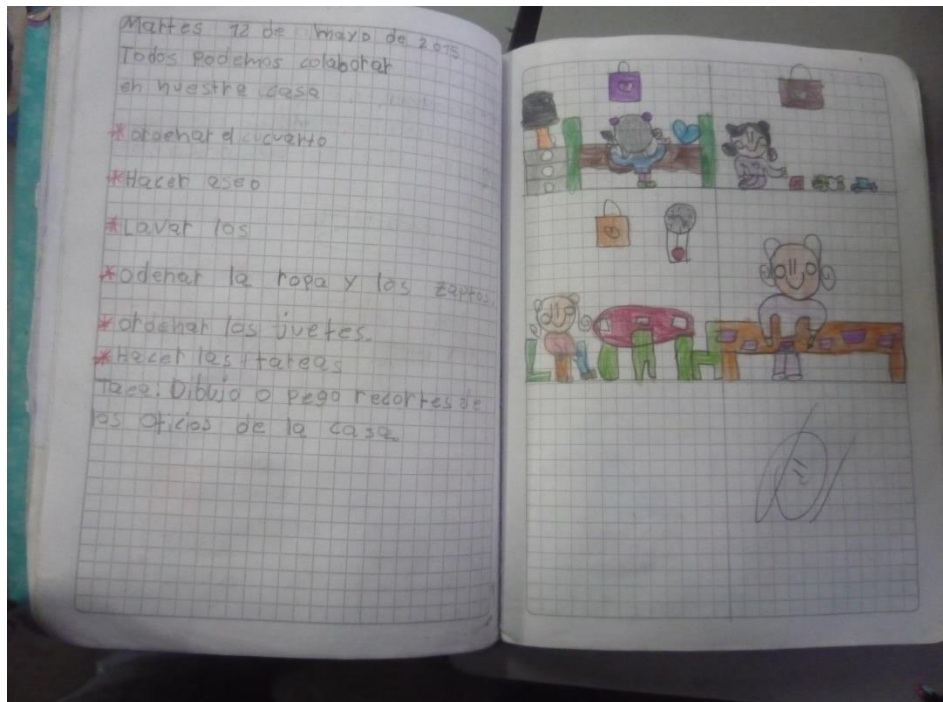 Martes 12 de mayo de 2015
Todos Podemos colaborar
en nuestra casa
*ordenar el cucuarto
*Hacer aseo
*Lavar los
*odenar la ropa y los zaptos.
*ordenar las juetes.
*Hacer las tareas
Taea: Dibujo o pego recortes de
los oficios de la casa